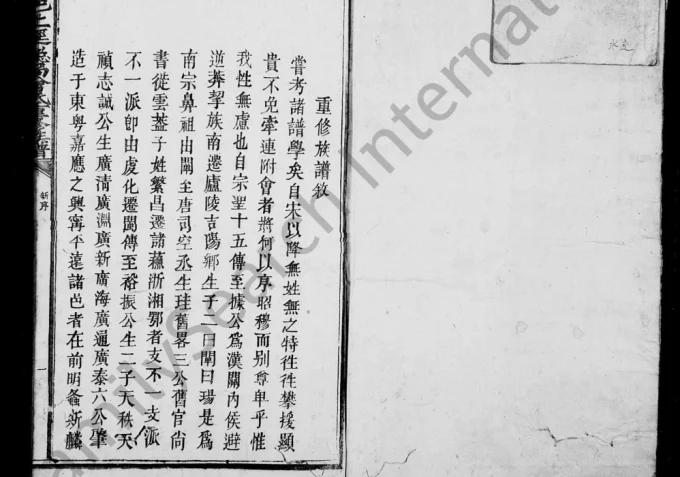 重修族譜敘
嘗考諸譜學矣自宋以降無姓無之特徃徃攀援顯
貴不免牽連附會者將何以序昭穆而别尊卑乎惟
我姓無慮也自宗聖十五傳至據公爲漢關内侯避
莽挈族南遷廬陵吉陽鄉生子二曰闡曰瑒是爲
南宗鼻祖由闡至唐司空丞生珪舊畧三公舊官尙
書徙雲葢子姓繁昌遷諸蘓浙湘鄂者支不一支派
不一派卽由虔化遷閩傳至裕振公生二子天秩天
禎志誠公生廣清廣淵廣新廣海廣通廣泰六公肇
造于東粤嘉應之興寗平遠諸邑者在前明螽斯麟
新序
一
FamilySearch Internat